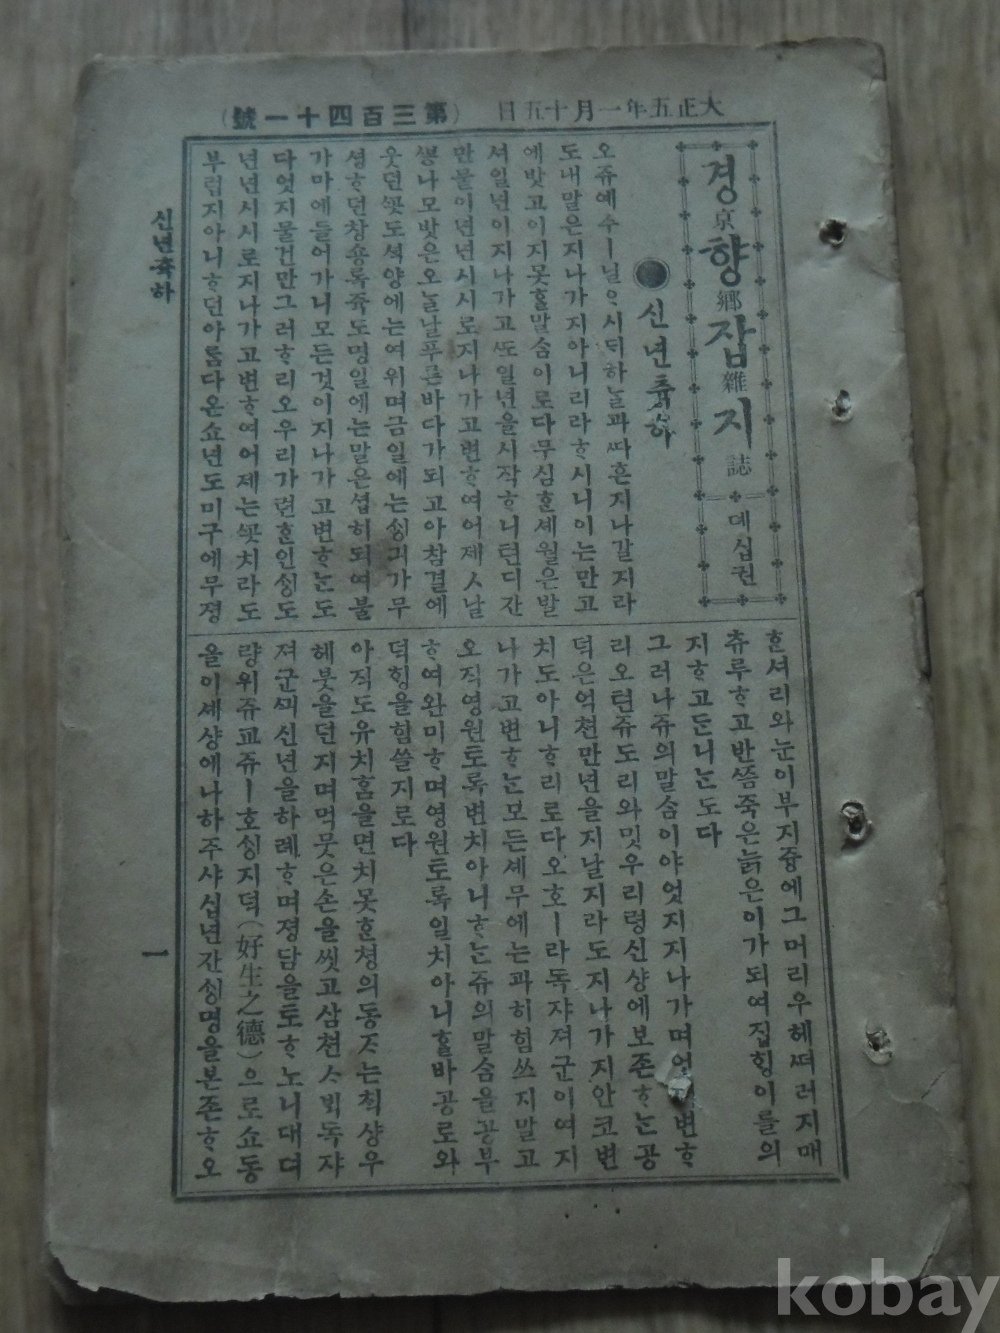 大正五年一月十五日
(第三百四十一號)
경京향鄕잡雜지誌 뎨십권
●신년츅하
오쥬예수ㅣ닐ᄋᆞ시ᄃᆡ하ᄂᆞᆯ과ᄯᅡ흔지나갈지라
도내말은지나가지아니리라ᄒᆞ시니이는만고
에밧고이지못ᄒᆞᆯ말ᄉᆞᆷ이로다무심ᄒᆞᆫ셰월은발
셔일년이지나가고ᄯᅩ일년을시작ᄒᆞ니텬디간
만물이년년시시로지나가고변ᄒᆞ여어제ㅅ날
ᄲᅩᆼ나모밧은오ᄂᆞᆯ날푸른바다가되고아참결에
웃던ᄭᅩᆺ도셕양에는여위며금일에는ᄉᆡᆼ긔가무
셩ᄒᆞ던창숑록쥭도명일에는말은셥히되여불
가마에들어가니모든것이지나가고변ᄒᆞᄂᆞᆫ도
다엇지물건만그러ᄒᆞ리오우리가련ᄒᆞᆫ인ᄉᆡᆼ도
년년시시로지나가고변ᄒᆞ여어제는ᄭᅩᆺ치라도
부럽지아니ᄒᆞ던아름다온쇼년도미구에무졍
ᄒᆞᆫ셔리와눈이부지즁에그머리우헤ᄯᅥ러지매
츄루ᄒᆞ고반ᄶᅳᆷ죽은늙은이가되여집힝이를의
지ᄒᆞ고ᄃᆞᆫ니ᄂᆞᆫ도다
그러나쥬의말ᄉᆞᆷ이야엇지지나가며 변ᄒᆞ
리오텬쥬도리와밋우리령신샹에보존ᄒᆞᄂᆞᆫ공
덕은억쳔만년을지날지라도지나가지안코변
치도아니ᄒᆞ리로다오호ㅣ라독쟈져군이여지
나가고변ᄒᆞᄂᆞᆫ모든셰무에는과히힘쓰지말고
오직영원토록변치아니ᄒᆞᄂᆞᆫ쥬의말ᄉᆞᆷ을공부
ᄒᆞ여완미ᄒᆞ며영원토록일치아니ᄒᆞᆯ바공로와
덕힝을힘쓸지로다
아직도유치홈을면치못ᄒᆞᆫ쳥의동ᄌᆞ는칙샹우
헤붓을던지며먹뭇은손을씻고삼쳔ㅅᄇᆡᆨ독쟈
져군ᄭᅴ신년을하례ᄒᆞ며졍담을토ᄒᆞ노니대뎌
량위쥬교쥬ㅣ호ᄉᆡᆼ지덕(好生之德)으로쇼동
을이셰샹에나하주샤십년간ᄉᆡᆼ명을본존ᄒᆞ오
신년츅하
一
kobay